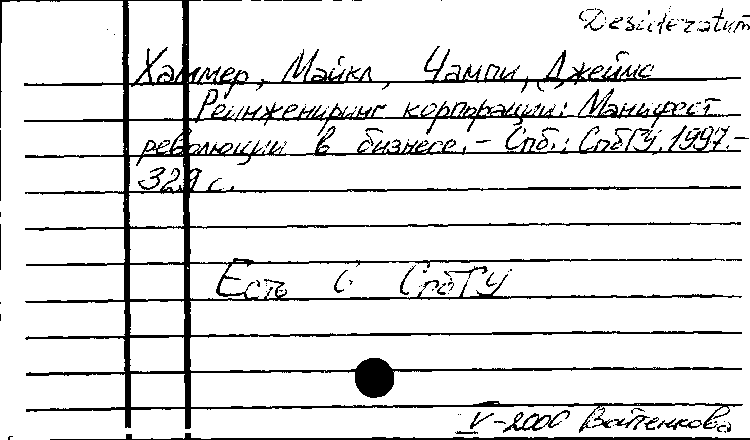 Desideratum
Хаммер, Майкл, Чампи, Джеймс
Реинжениринг корпорации: Манифест
революции в бизнесе. - Спб.: СпбГУ, 1997. -
329 с.
Есть в СпбГУ
V-2000 Войтенкова